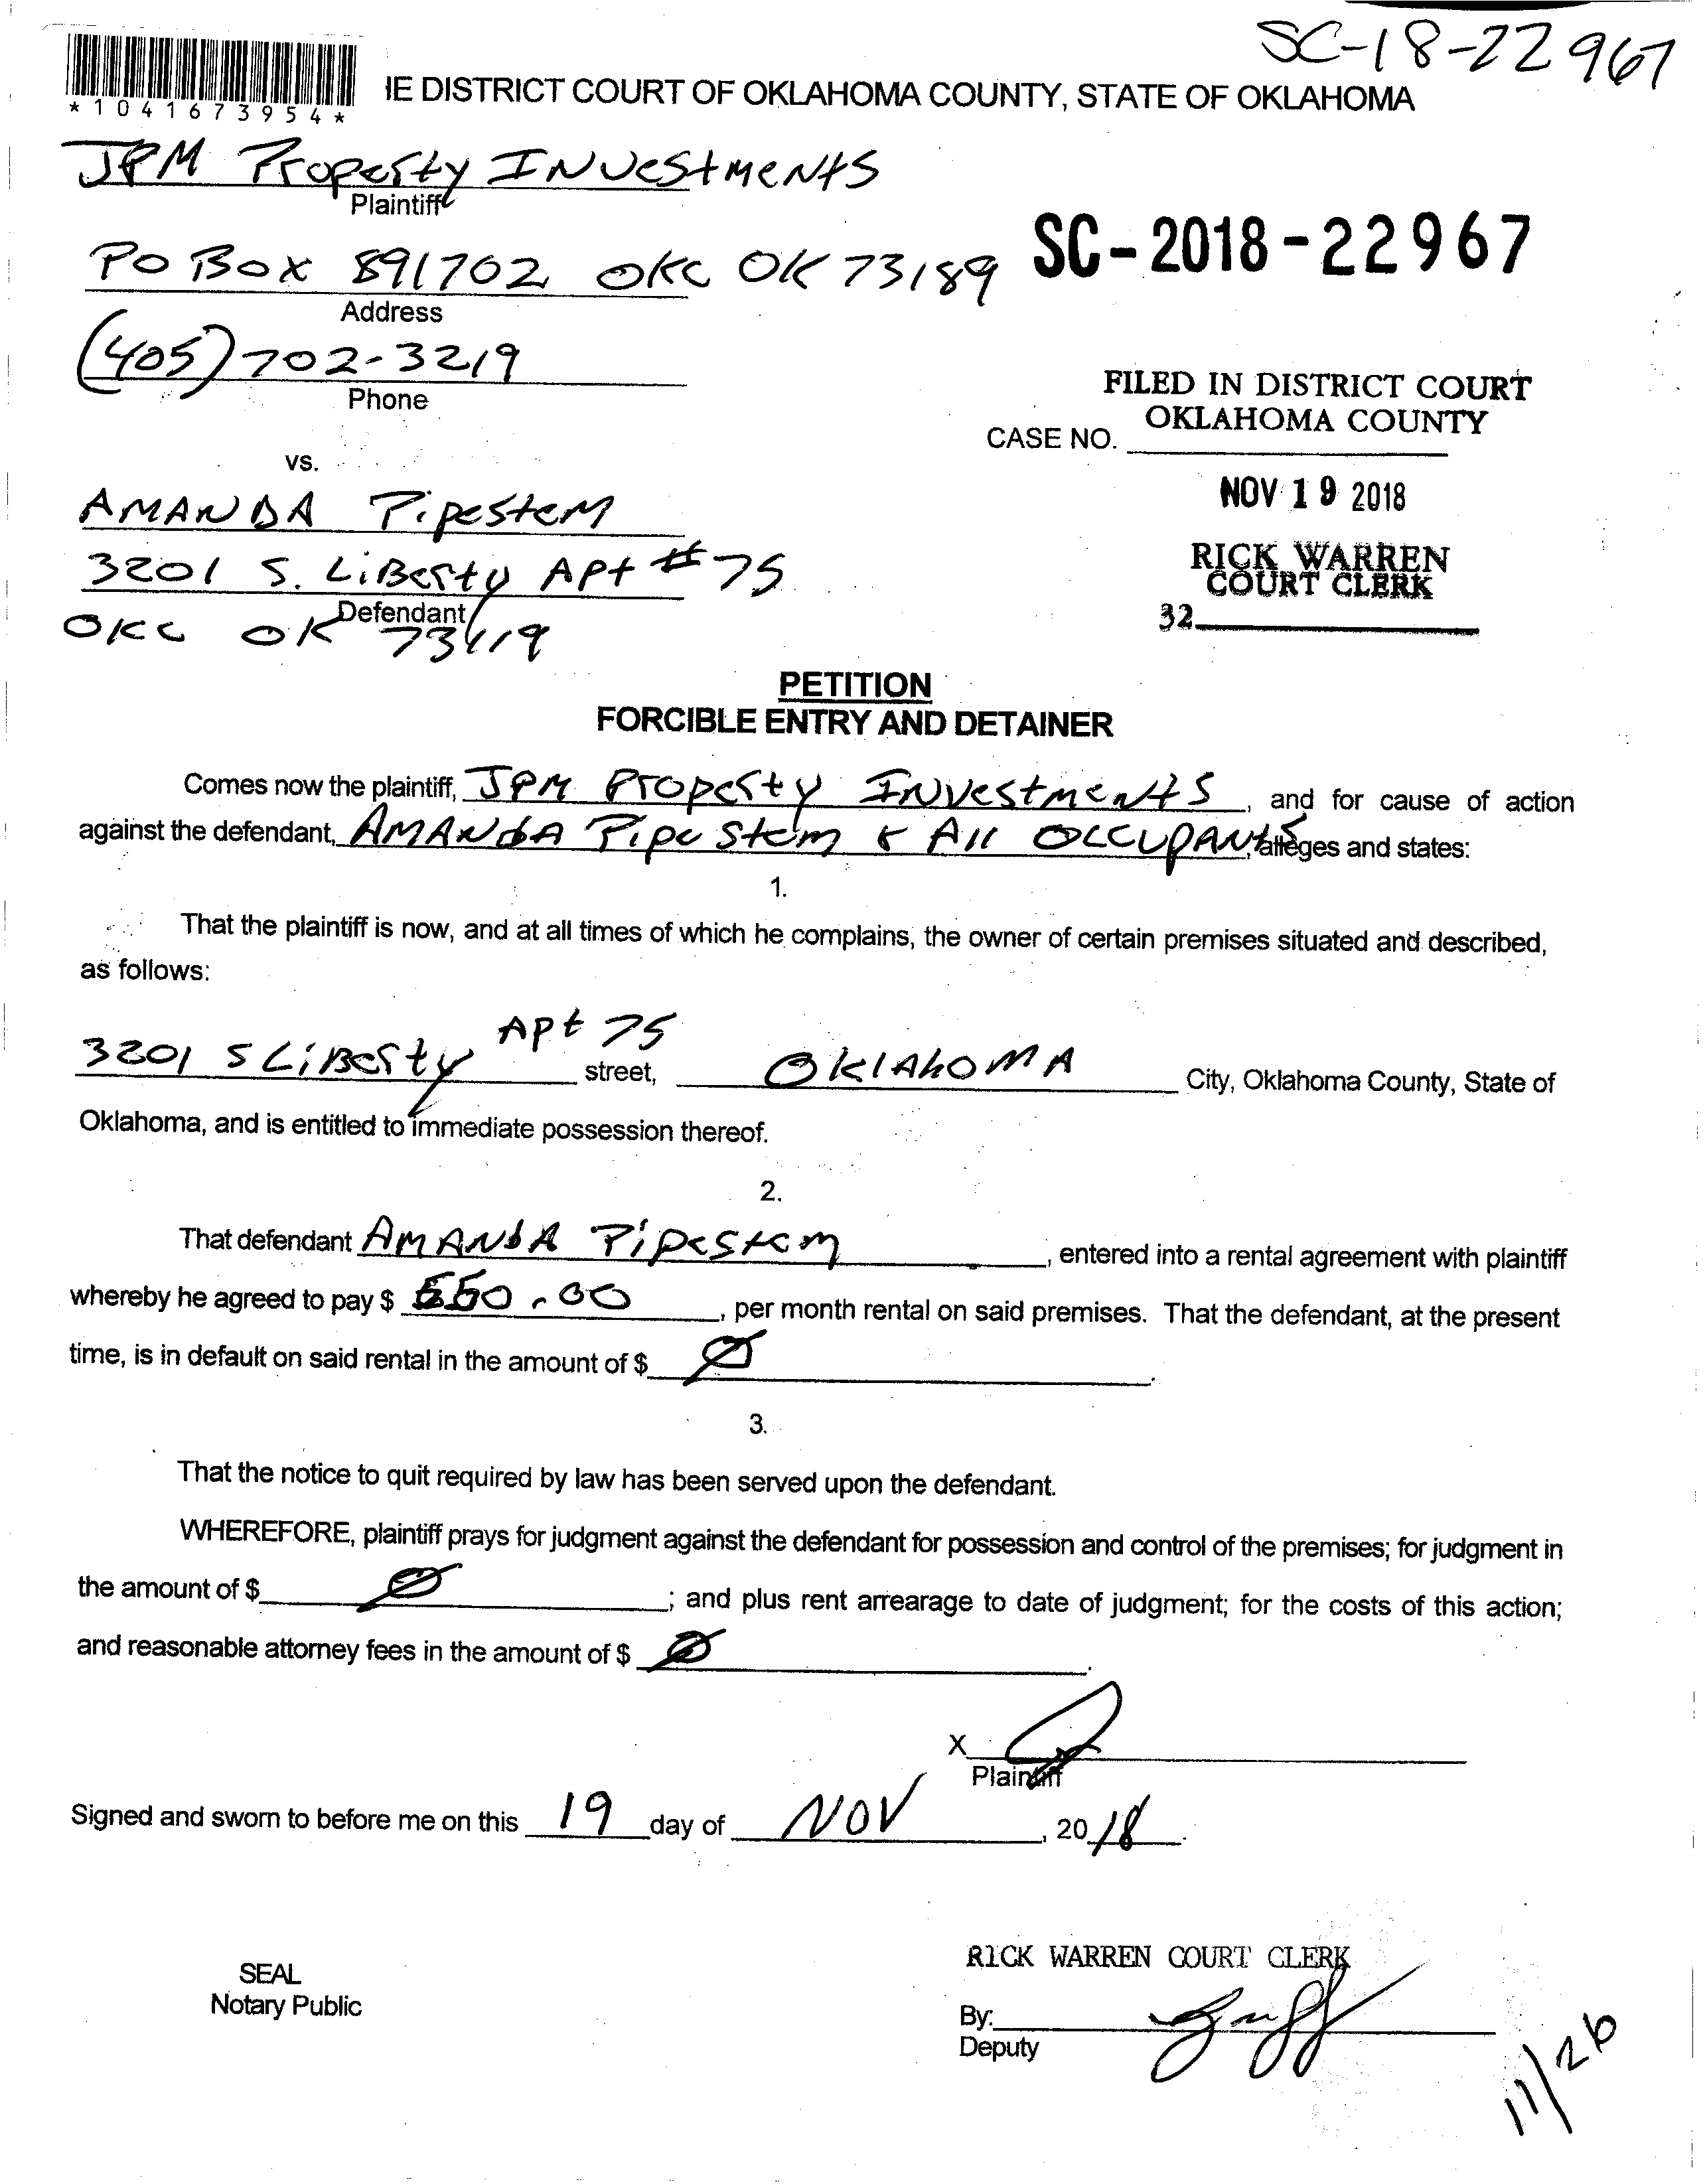 SC-18-22967
*1041673954*
IE DISTRICT COURT OF OKLAHOMA COUNTY, STATE OF OKLAHOMA
JPM Property Investments
Plaintiff
PO Box 891702 OKC OK 73189
SC-2018-22967
Address
(405) 702-3219
Phone
FILED IN DISTRICT COURT
OKLAHOMA COUNTY
CASE NO.
vs.
NOV 19 2018
AMANDA Pipestem
3201 S. Liberty Apt #75
RICK WARREN
COURT CLERK
Defendant
32
OKC OK 73119
PETITION
FORCIBLE ENTRY AND DETAINER
Comes now the plaintiff, JPM Property Investments, and for cause of action
against the defendant, AMANDA Pipestem & All OCCUPANTS, alleges and states:
1.
That the plaintiff is now, and at all times of which he complains, the owner of certain premises situated and described,
as follows:
3201 S Liberty Apt 75 street, OKlAhOMA City, Oklahoma County, State of
Oklahoma, and is entitled to immediate possession thereof.
2.
That defendant AMANDA Pipestem, entered into a rental agreement with plaintiff
whereby he agreed to pay $ 550.00, per month rental on said premises. That the defendant, at the present
time, is in default on said rental in the amount of $ Ø.
3.
That the notice to quit required by law has been served upon the defendant.
WHEREFORE, plaintiff prays for judgment against the defendant for possession and control of the premises; for judgment in
the amount of $ Ø; and plus rent arrearage to date of judgment; for the costs of this action;
and reasonable attorney fees in the amount of $ Ø.
X
Plaintiff
Signed and sworn to before me on this 19 day of NOV, 2018.
RICK WARREN COURT CLERK
SEAL
Notary Public
By:
Deputy
11/26